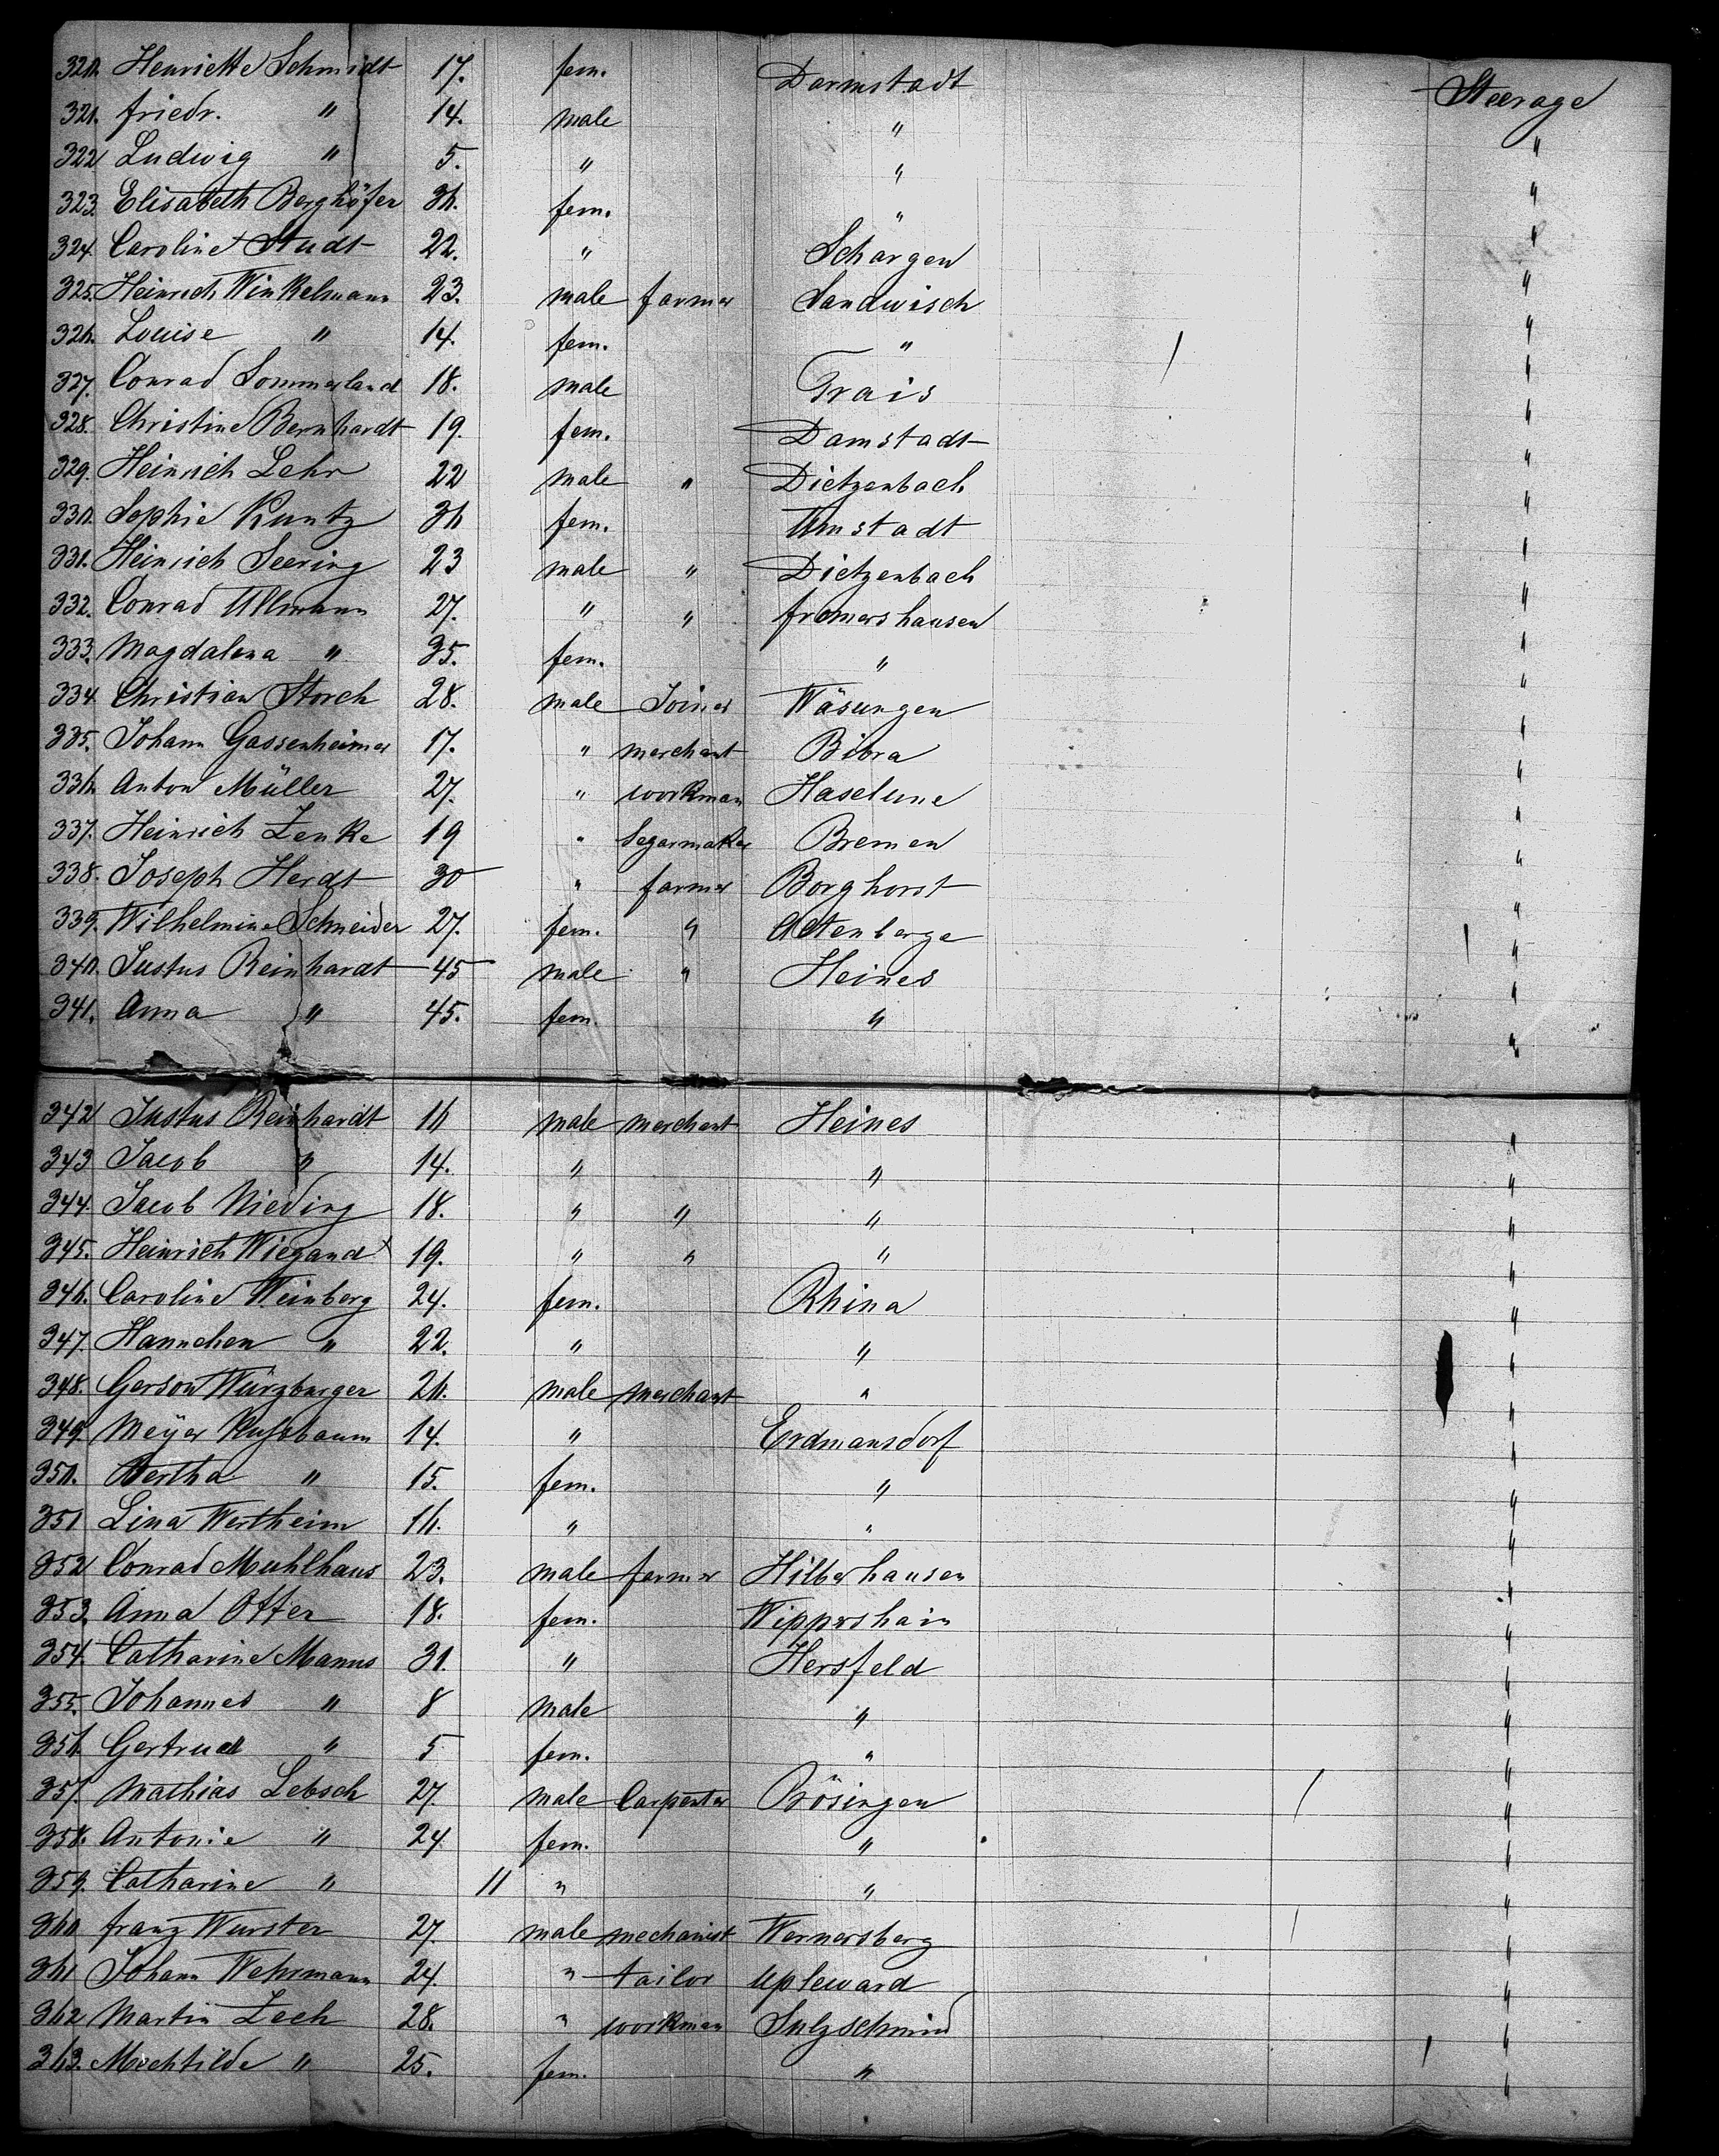 320. Henriette Schmidt 17. fem. Darmstadt Steerage
321. Friedr. " 14. male " "
322 Ludwig " 5. " " "
323. Elisabeth Berghöfer 36. fem. " "
324. Caroline Studt 22. " Schargen "
325. Heinrich Winkelmann 23. male farmer Sandwisch "
326. Louise " 14. fem. " "
327. Conrad Sommerland 18. male Trais "
328. Christine Bernhardt 19. fem. Damstadt "
329. Heinrich Lehr 22 male " Dietzenbach "
330. Sophie Kuntz 36 fem. Umstadt "
331. Heinrich Seering 23 male " Dietzenbach "
332. Conrad Ullmann 27. " " Fromershausen "
333. Magdalena " 35. fem. " "
334. Christian Storch 28. male Joiner Wäsungen "
335. Johann Gassenheimer 17. " merchant Bibra "
336. Anton Müller 27. " workman Haselune "
337. Heinrich Zenke 19 " Segarmaker Bremen "
338. Joseph Herdt 30 " farmer Borghorst "
339. Wilhelmine Schneider 27. fem. " Altenberge "
340. Justus Reinhardt 45 male " Heines "
341. Anna " 45. fem. " "
342 Justus Reinhardt 16 male merchant Heines "
343 Jacob " 14. " " "
344. Jacob Nieding 18. " " " "
345. Heinrich Wiegand 19. " " " "
346. Caroline Weinberg 24. fem. Rhina "
347. Hannchen " 22. " " "
348. Gerson Würzburger 26. male merchant " "
349. Meyer Nußbaum 14. " Erdmansdorf "
350. Bertha " 15. fem. " "
351 Lina Wertheim 16. " " "
352 Conrad Muhlhaus 23. male farmer Hilberhausen "
353. Anna Otter 18. fem. Wippershain "
354. Catharine Manns 31. " Hersfeld "
355. Johannes " 8 male " "
356. Gertrud " 5 fem. " "
357. Mathias Lebsch 27 male Carpenter Bösingen "
358. Antonie " 24 fem. " "
359. Catharine " 11 " " "
360 Franz Wurster 27. male mechanist Wernersberg "
361 Johann Wehrmann 24. " tailor Upleward "
362 Martin Zech 28. " workman Sulzschmid "
363. Mechtilde " 25. fem. " "